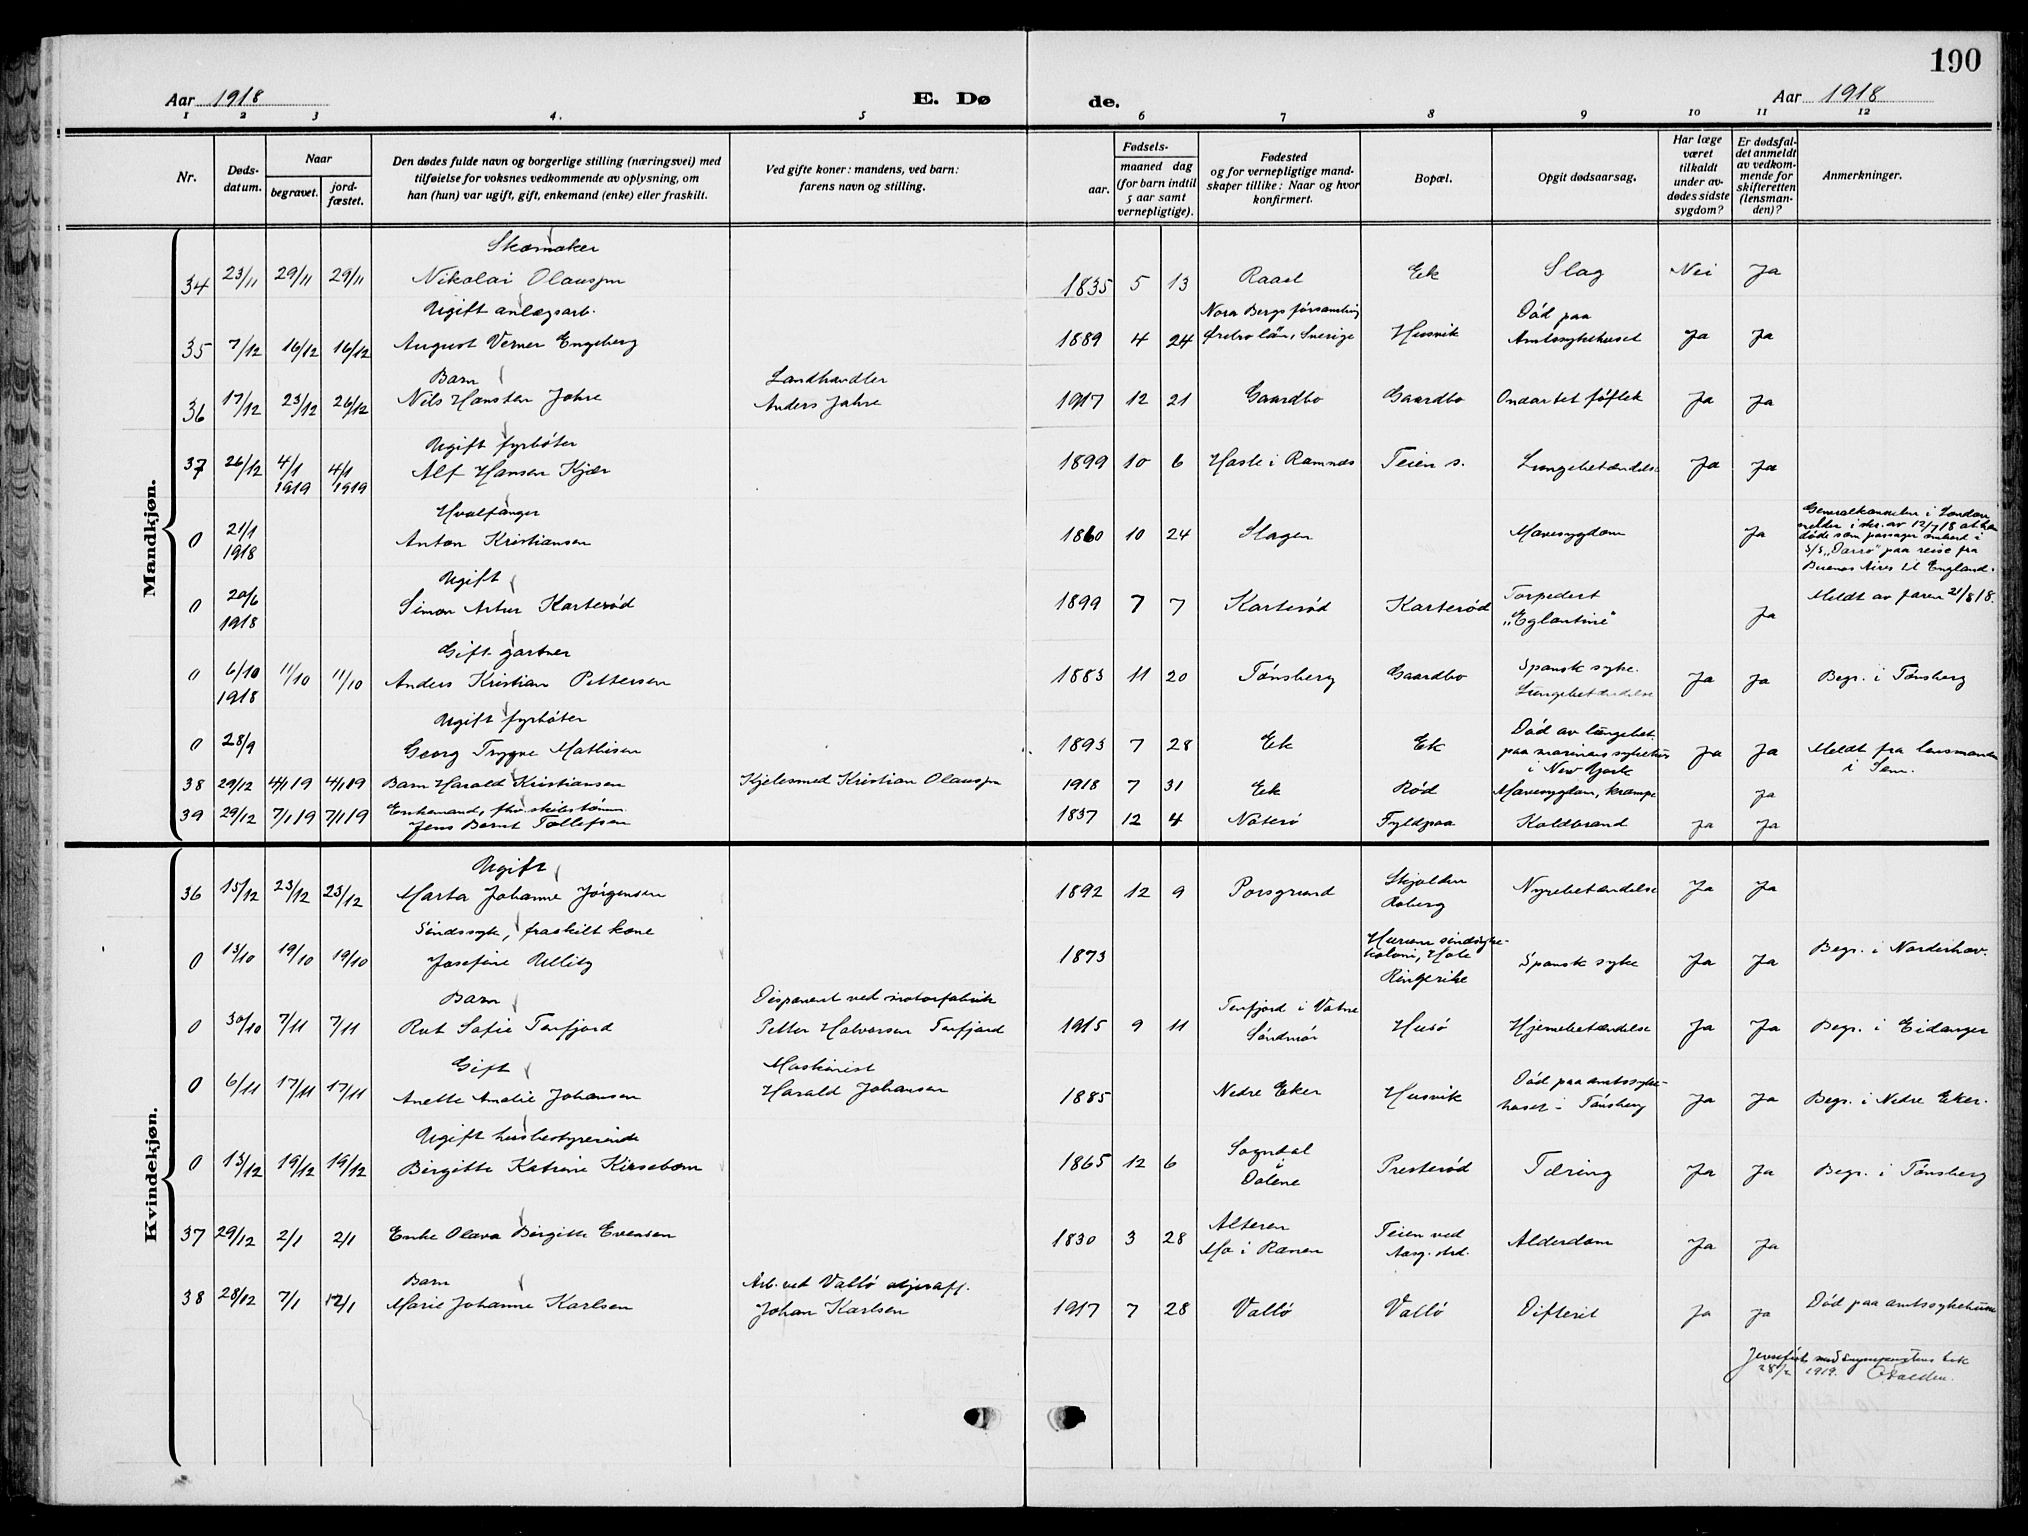 190
Aar 1918 E. Dø de. Aar 1918
1 2 3 4. 5 6 7 8 9 10 11 12
Nr. Døds-datum. Naar begravet. jord-fæstet. Den dødes fulde navn og borgerlige stilling (næringsvei) med tilføielse for voksnes vedkommende av oplysning, om han (hun) var ugift, gift, enkemand (enke) eller fraskilt. Ved gifte koner: mandens, ved barn: farens navn og stilling. Fødsels- aar. maaned dag (for barn indtil 5 aar samt vernepligtige). Fødested og for vernepligtige mandskaper tillike: Naar og hvor konfirmert. Bopæl. Opgit dødsaarsag. Har læge været tilkaldt under avdødes sidste sygdom? Er dødsfaldet anmeldt av vedkommende for skifteretten (lensmanden)? Anmerkninger.
Mandkjøn.
Skomaker
34 23/11 29/11 29/11 Nikolai Olaussen 1835 5 13 Raael Eek Slag Nei Ja
Ugift anlægsarb. Nora Bergs församling Död paa
35 7/12 16/12 16/12 August Verner Engeberg 1889 4 24 Örebro län, Sverige Husvik Amtssykehuset Ja Ja
Barn Landhandler
36 17/12 23/12 26/12 Nils Hansten Jahre Anders Jahre 1917 12 21 Gaardbo Gaardbo Ondartet föflek Ja Ja
Ugift fyrböter
37 26/12 4/1 1919 4/1 1919 Alf Hansen Kjær 1899 10 6 Hasle i Ramnes Teien s. Lungebetændelse Ja Ja
Hvalfanger
0 21/1 1918 Anton Kristiansen 1860 10 24 Slagen Mavesygdom Ja Generalkonsulen i London melder i skr. av 12/7 18 at han döde som passager ombord i S/S „Darro" paa reise fra Buenos Aires til England.
Ugift
0 20/6 1918 Simon Artur Karterød 1899 7 7 Karterød Karterød Torpedert „Eglantine" Ja Meldt av faren 21/8 18.
Gift gartner
0 6/10 1918 11/10 11/10 Anders Kristian Pettersen 1883 11 20 Tönsberg Gaardbo Spansk syke. Lungebetændelse Ja Ja Begr. i Tönsberg
Ugift fyrböter
0 28/9 Georg Trygve Mathisen 1893 7 28 Eek Eek Död av lungebet. paa marinens sykehus i New York Ja Ja Meldt fra lensmanden i Sem.
38 29/12 4/1 19 4/1 19 Barn Harald Kristiansen Kjelesmed Kristian Olaussen 1918 7 31 Eek Röd Mavesygdom, krampe Ja
39 29/12 7/1 19 7/1 19 Enkemand, fhv. skibstömm. Jens Bernt Tollefsen 1837 12 4 Nøterø Fyldpaa Koldbrand Ja Ja
Kvindekjøn.
Ugift
36 15/12 23/12 23/12 Marta Johanne Jörgensen 1892 12 9 Porsgrund Skjolden Roberg Nyrebetændelse Ja Ja
Sindssyk, fraskilt kone
0 13/10 19/10 19/10 Josefine Ulleby 1873 Hurum sindsyke-koloni, Hole Ringerike Spansk syke Ja Ja Begr. i Norderhov.
Barn Disponent ved motorfabrik
0 30/10 7/11 7/11 Rut Sofie Tenfjord Petter Halvorsen Tenfjord 1915 9 11 Tenfjord i Vatne Söndmör Husö Hjernebetændelse Ja Ja Begr. i Eidanger
Gift Maskinist
0 6/11 17/11 17/11 Anette Amalie Johansen Harald Johansen 1885 Nedre Eker Husvik Död paa amtssyke-huset i Tönsberg Ja Ja Begr. i Nedre Eker.
Ugift husbestyrerinde
0 13/12 19/12 19/12 Birgitte Katrine Kirsebom 1865 12 6 Sogndal i Dalene Presteröd Tæring Ja Ja Begr. i Tönsberg
37 29/12 2/1 2/1 Enke Olava Birgitte Evensen 1830 3 28 Alteren Mo i Ranen Teien ved Aasg. strd. Alderdom Ja Ja
Barn Arb. ved Vallö oljeraff.
38 28/12 7/1 12/1 Marie Johanne Karlsen Johan Karlsen 1917 7 28 Vallö Vallö Difterit Ja Ja Död paa amtssykehuset
Jevnført med sogneprestens bok
28/2 1919.